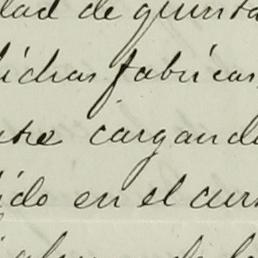 dad de quinta
dichas fabricas
cargando
ido en el curs